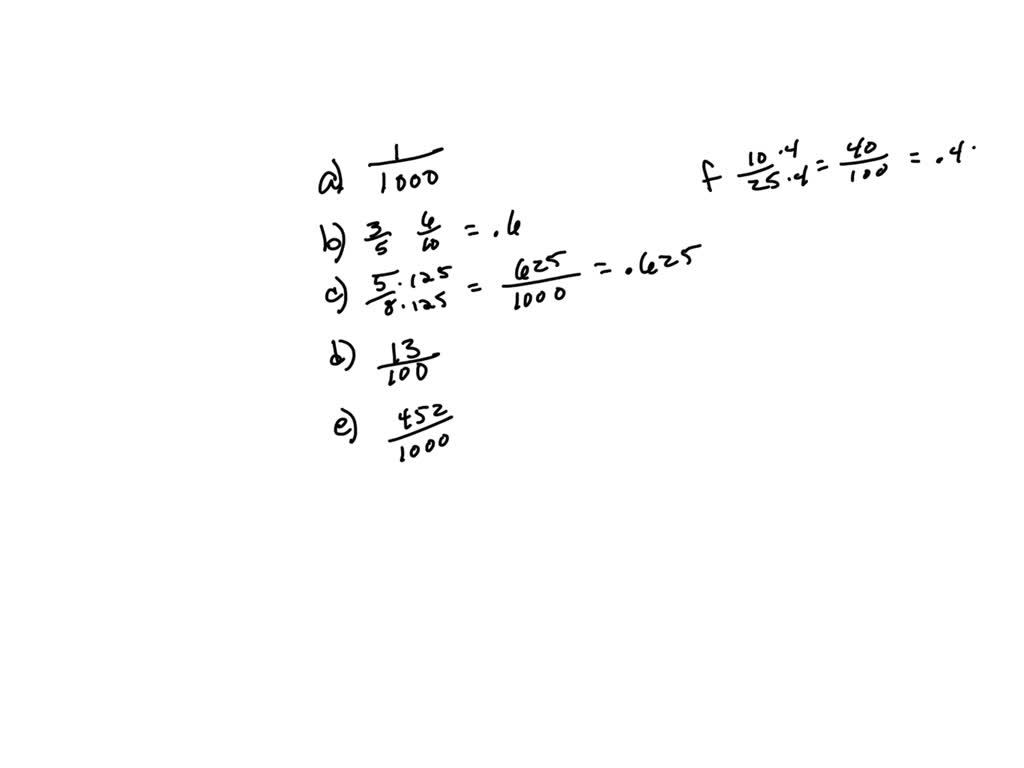 a) 1/1000
b) 3/5 6/10 = .6
c) 5·125/8·125 = 625/1000 = .625
d) 13/100
e) 452/1000
f 10·4/25·4 = 40/100 = .4